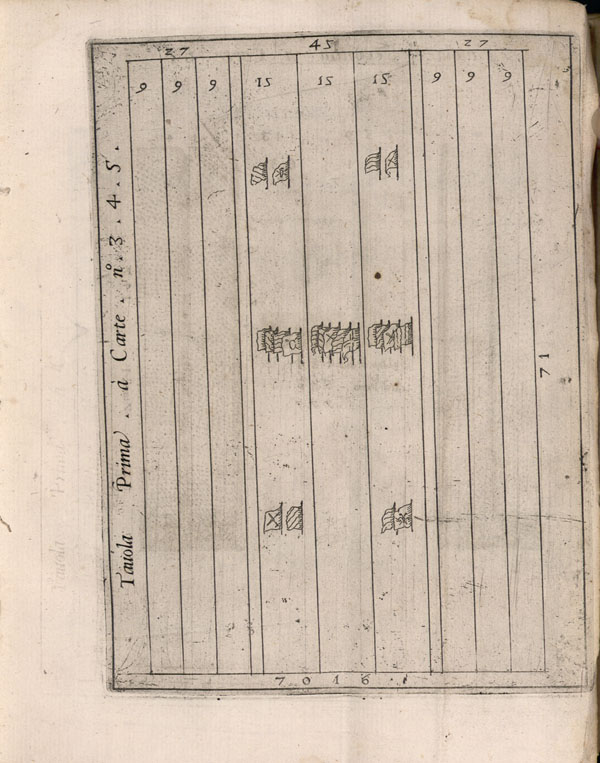 Tauola Prima . à Carte . nº. 3 . 4 . 5 .
27 45 27
9 9 9 15 15 15 9 9 9
71
7 0 1 6